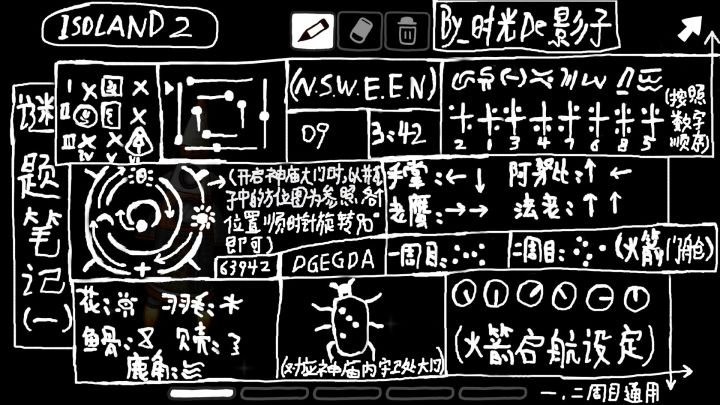 ISOLAND 2
By_时光De影子
谜题笔记(一)
I X X
II
III X X
IV V
(N.S.W.E.E.N)
09
3:42
2 1 3 4 7 6 8 5
(按照
数字
顺序)
(开启神庙大门时,以并
子中的方位图为参照,各
位置顺时针旋转90°
即可)
63942
手掌:← ↓
阿努比:↑ ←
老鹰:→→
法老:↑ ↑
DGEGDA
一周目:
二周目:
(火箭门舱)
花:
羽毛:
鱼骨:
贝壳:
鹿角:
(对应神庙内字卫处大门)
(火箭启航设定)
一.二周目通用